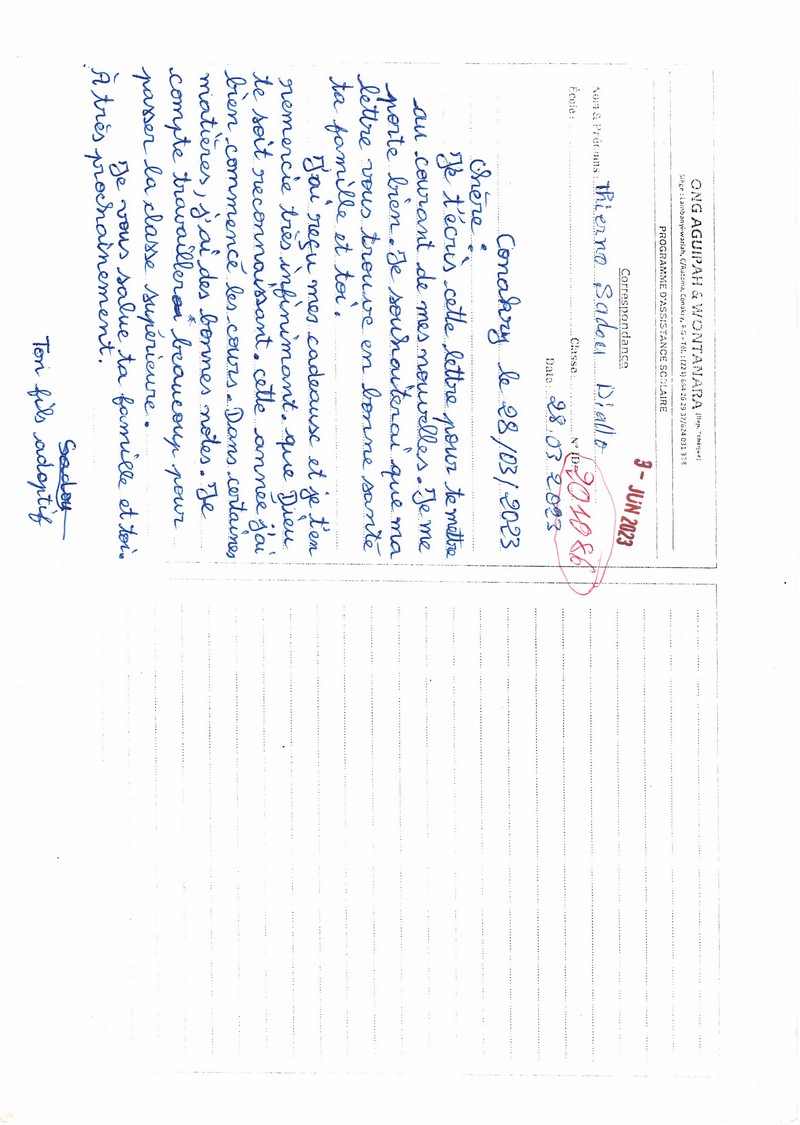 ONG AGUIPAH & WONTANARA (Rép. Tchèque)
Siège : Lambanyi-wariah, C/Ratoma, Conakry, R.G - Tél. : (224) 664 26 29 37/624 031 313
PROGRAMME D'ASSISTANCE SCOLAIRE
9 - JUN 2023
Correspondance
Nom & Prénoms : Thierno Sadou Diallo
École : Classe : N° ID: 201086
Date : 28.03.2023
Conakry le 28/03/2023
Chère :
Je t'écris cette lettre pour te mettre
au courant de mes nouvelles. Je me
porte bien. Je souhaiterai que ma
lettre vous trouve en bonne santé
ta famille et toi.
J'ai reçu mes cadeause et je t'en
remercie très infiniment. que Dieu
te soit reconnaissant. cette année j'ai
bien commencé les cours. Dans certaines
matières, j'ai des bonnes notes. Je
compte travailler beaucoup pour
passer la classe supérieure.
Je vous salue ta famille et toi.
À très prochainement.
Sadou
Ton fils adoptif